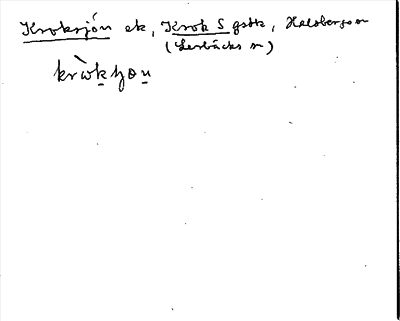 Kroksjön ek, Krok S gstk, Halsbergs sn
(Lerbäcks sn)
kròkʃon